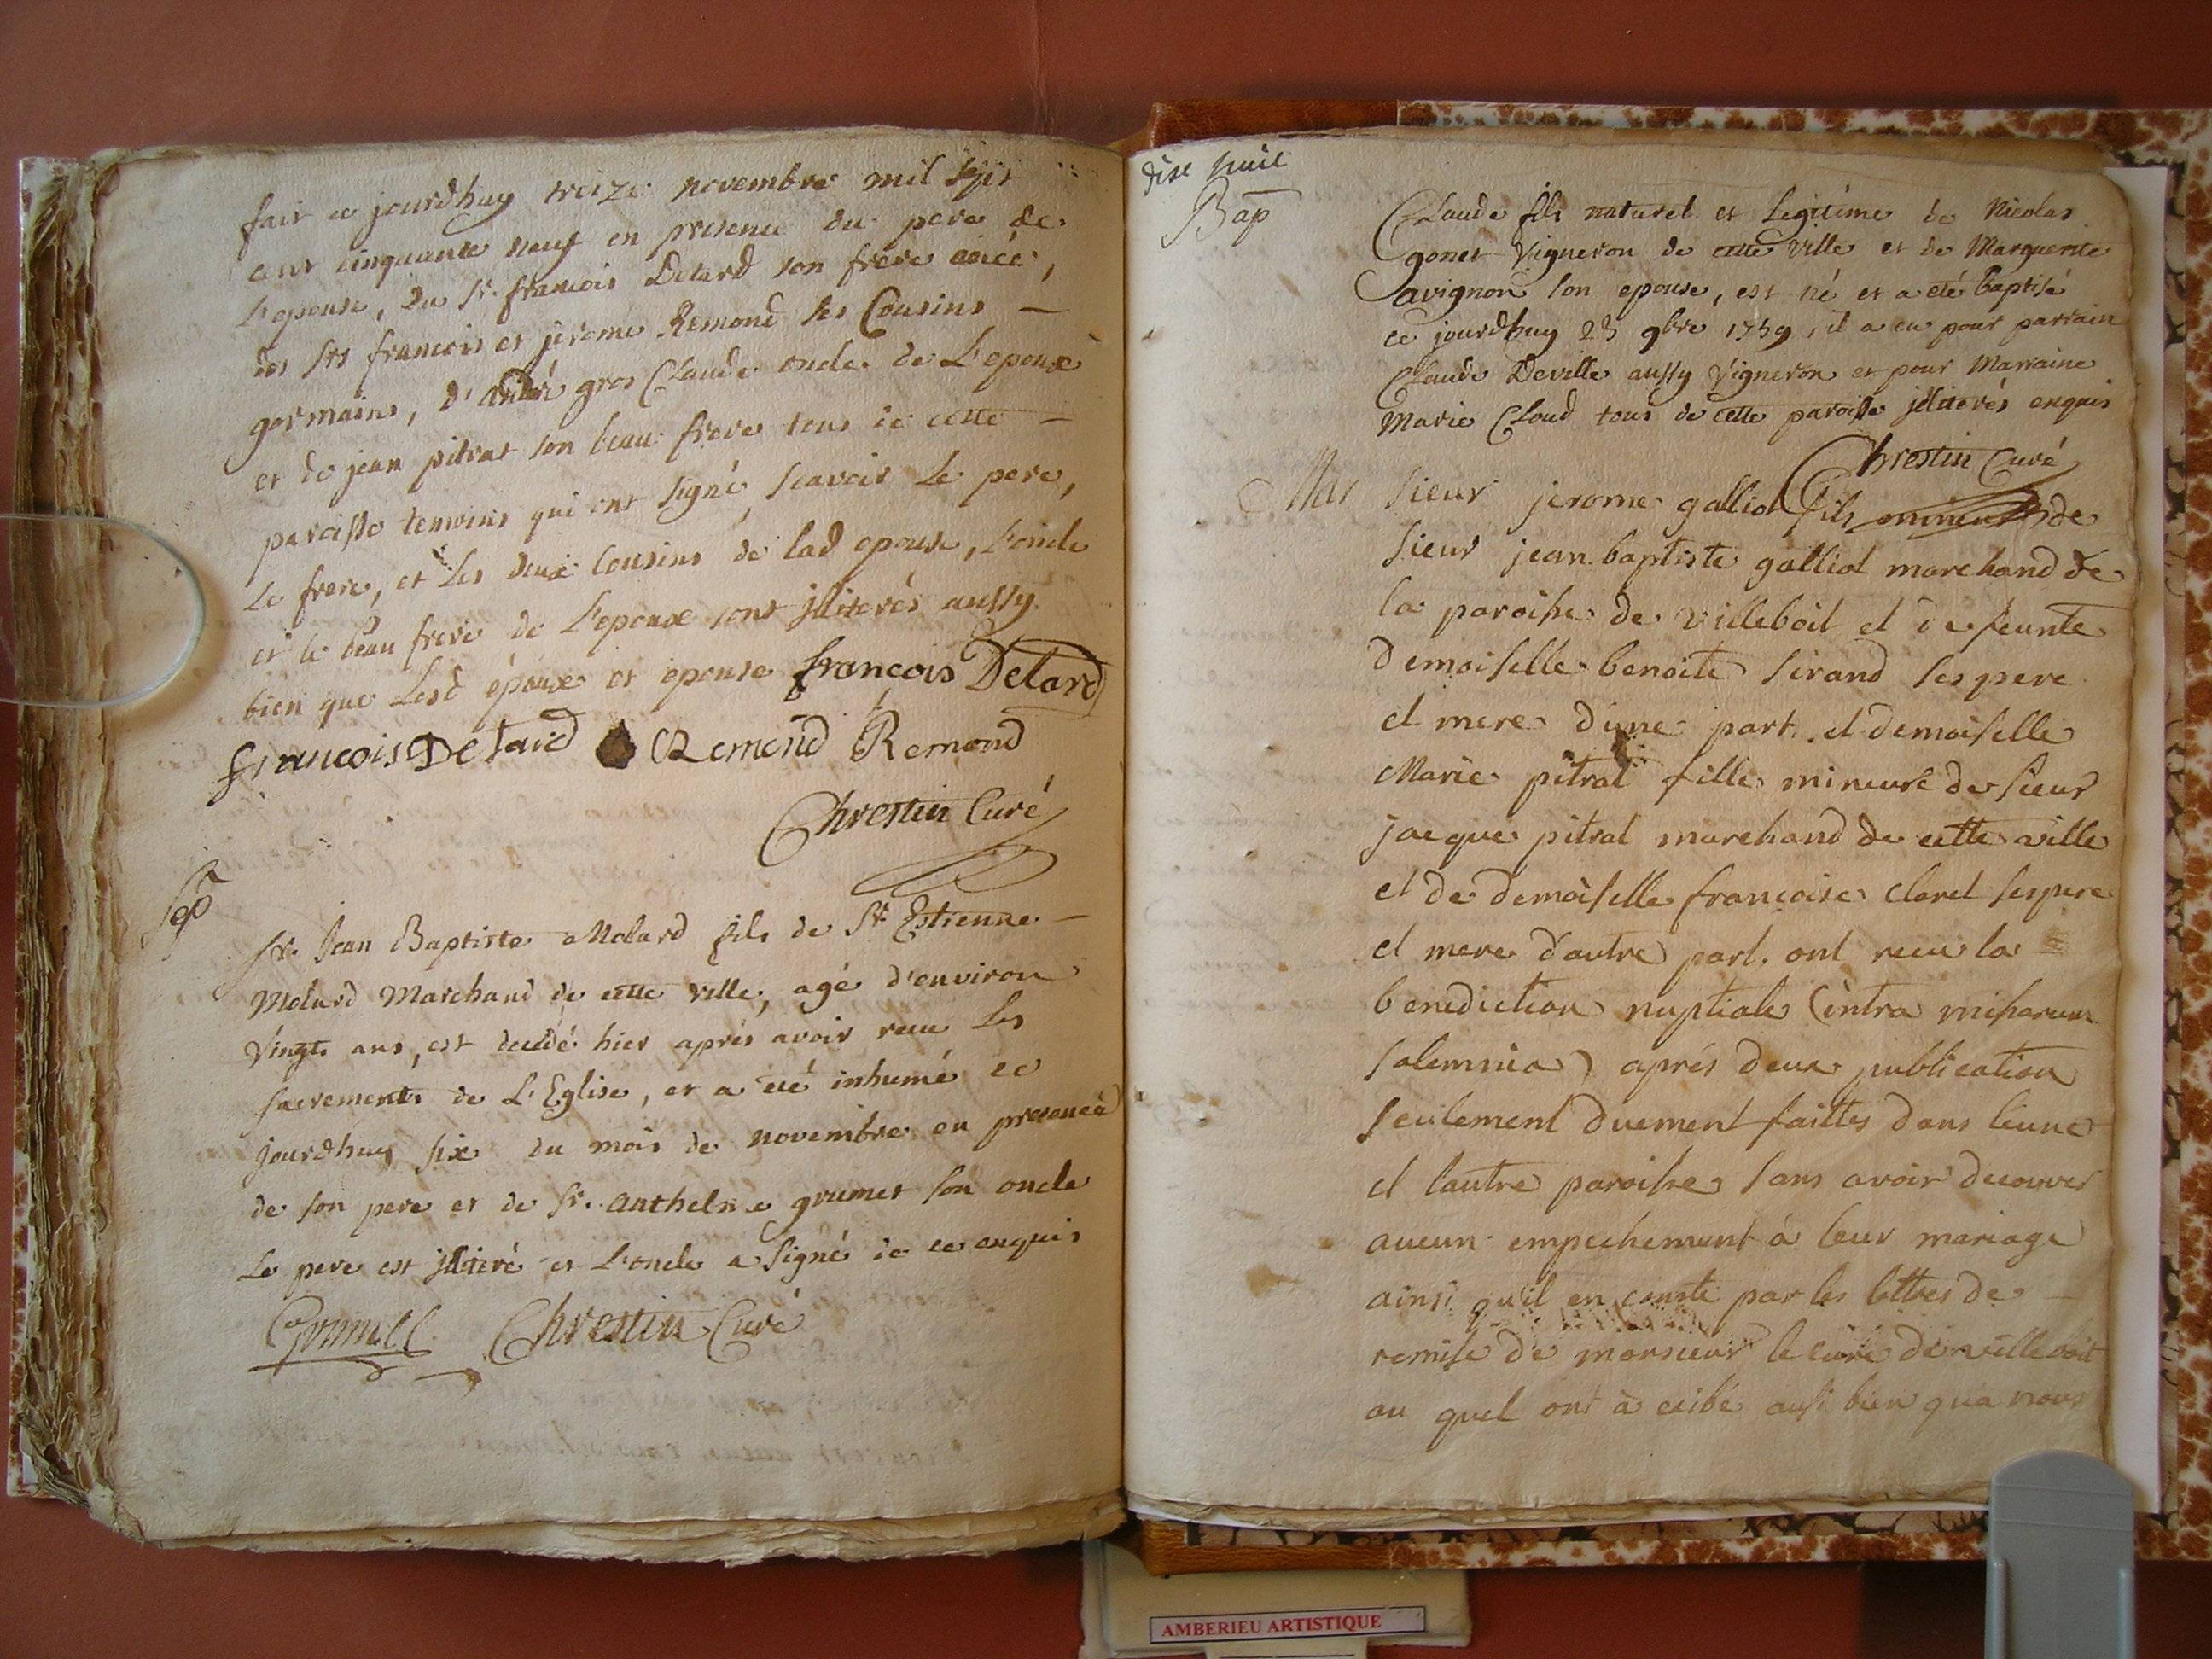 fait ce jourdhuy treize novembre mil sept
cent cinquante neuf en presence du pere de
L'epouse, du Sr. francois Detard son frere
des Srs francois et jerome Remond ses Cousins —
germains, d'André gros Claude oncle de L'epoux
et de jean pitrat son beau frere tous de cette —
paroisse temoins qui ont signé, scavoir Le pere,
Le frere, et Les deux cousins de lad epouse, L'oncle
et le beau frere de L'epoux sont jlliterés aussy
bien que Lesd époux et epouse francois Detard
francois Detard Remond Remond
Chrestin Curé
Sep
Sr. Jean Baptiste Molard fils de Sr. Estienne —
Molard Marchand de cette ville, agé d'environ
vingts ans, est decedé hier aprés avoir recu les
sacrements de L'Eglise, et a été inhumé ce
jourdhuy six du mois de novembre en presence
de son pere et de Sr. anthelme grumet son oncle
Le pere est jlliteré et L'oncle a signé de ce enquis
Grumet Chrestin Curé
dix huit
Bap
Claude fils naturel et Legitime de Nicolas
gonet vigneron de cette ville et de Marguerite
avignon son epouse, est né et a eté baptisé
ce jourdhuy 23 9bre 1759, il a eu pour parrain
Claude Deville aussy vigneron et pour Marraine
Marie Cloud tous de cette paroisse jlliterés enquis
Chrestin Curé
Mar
sieur jerome galliot fils mineur de
sieur jean baptiste galliot marchand de
la paroisse de villeboit et de feunte
demoiselle benoite sirand ses pere
et mere d'une part. et demoiselle
Marie pitrat fille mineure de sieur
jacque pitrat marchand de cette ville
et de demoiselle francoise claret ses pere
et mere d'autre part. ont recu la
benediction nuptiale (intra missarum
solemnia) aprés deux publication
seulement duement faittes dans leune
et lautre paroisse sans avoir decouver
aucun empechement à leur mariage
ainsi qu'il en conste par les lettres de —
remise de monsieur le curé de villeboit
au quel ont à exibé ausi bien qu'a nous
AMBERIEU ARTISTIQUE